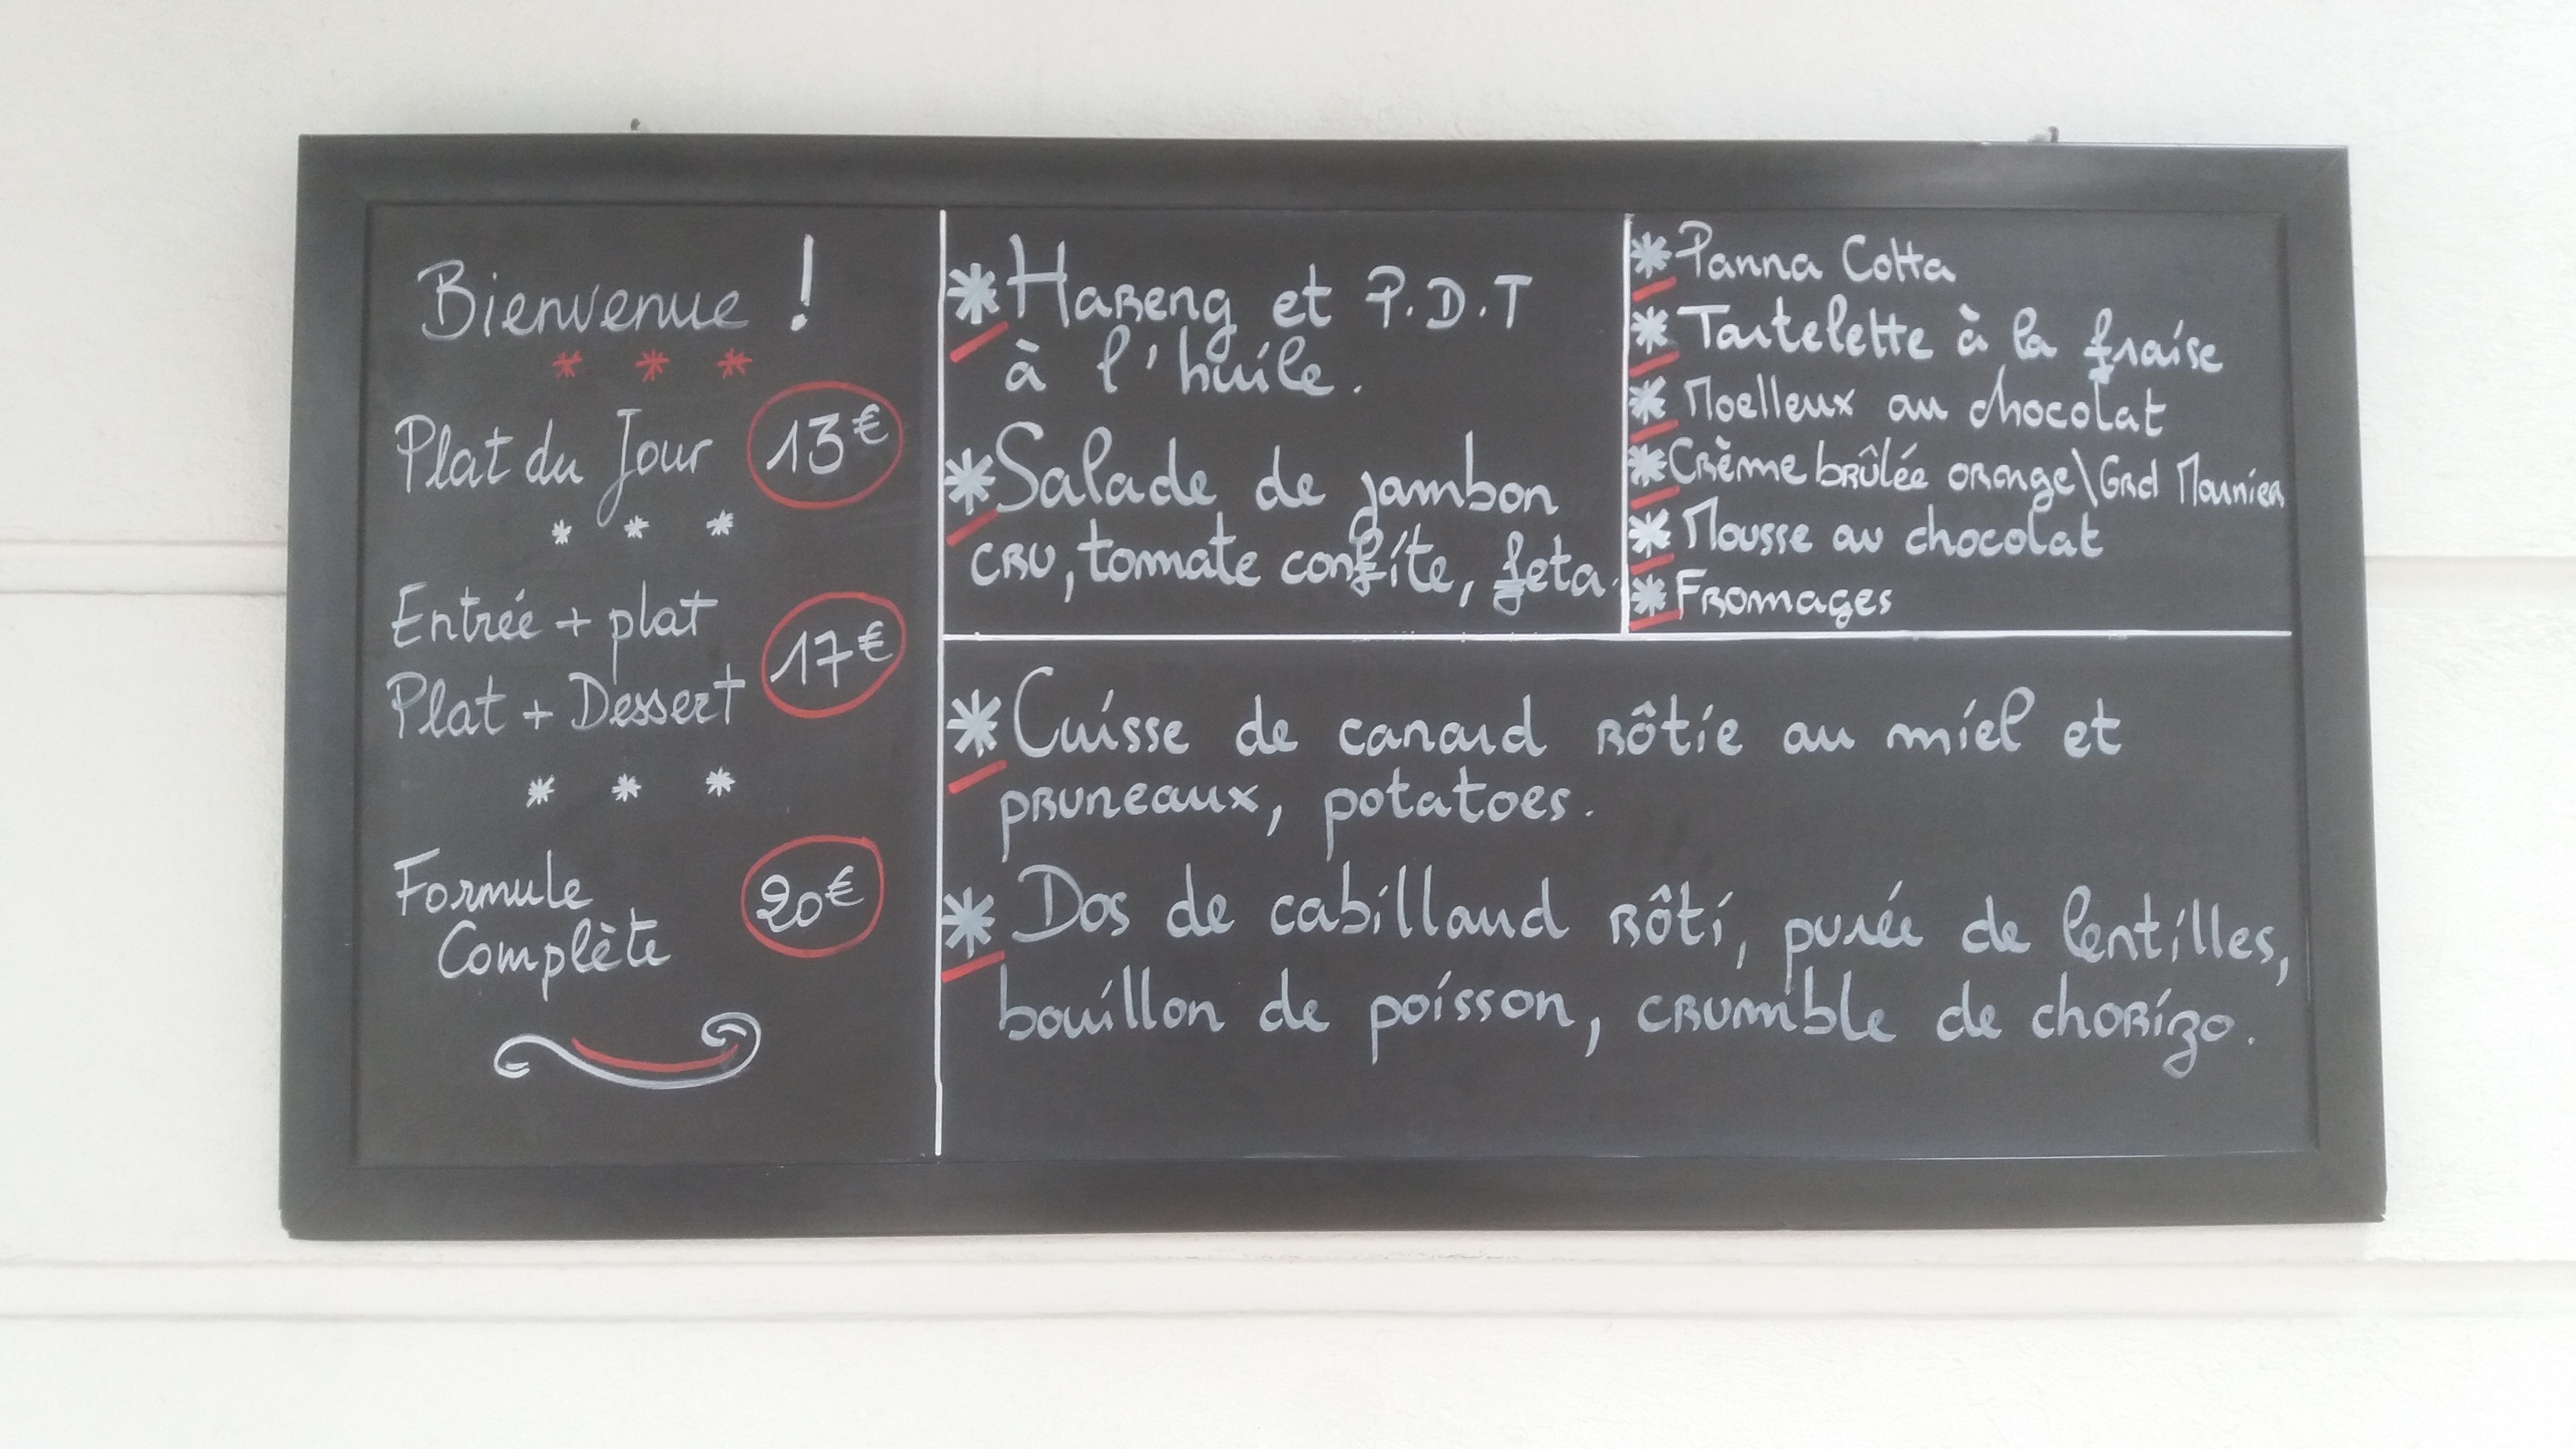 Bienvenue !
* * *
Plat du Jour 13€
* * *
Entrée + plat
Plat + Dessert 17€
* * *
Formule
Complète 20€
* Hareng et P.D.T
à l'huile.
* Salade de jambon
cru, tomate confite, feta.
* Panna Cotta
* Tartelette à la fraise
* Moelleux au chocolat
* Crème brûlée orange\Grd Marnier
* Mousse au chocolat
* Fromages
* Cuisse de canard rôtie au miel et
pruneaux, potatoes.
* Dos de cabillaud rôti, purée de lentilles,
bouillon de poisson, crumble de chorizo.